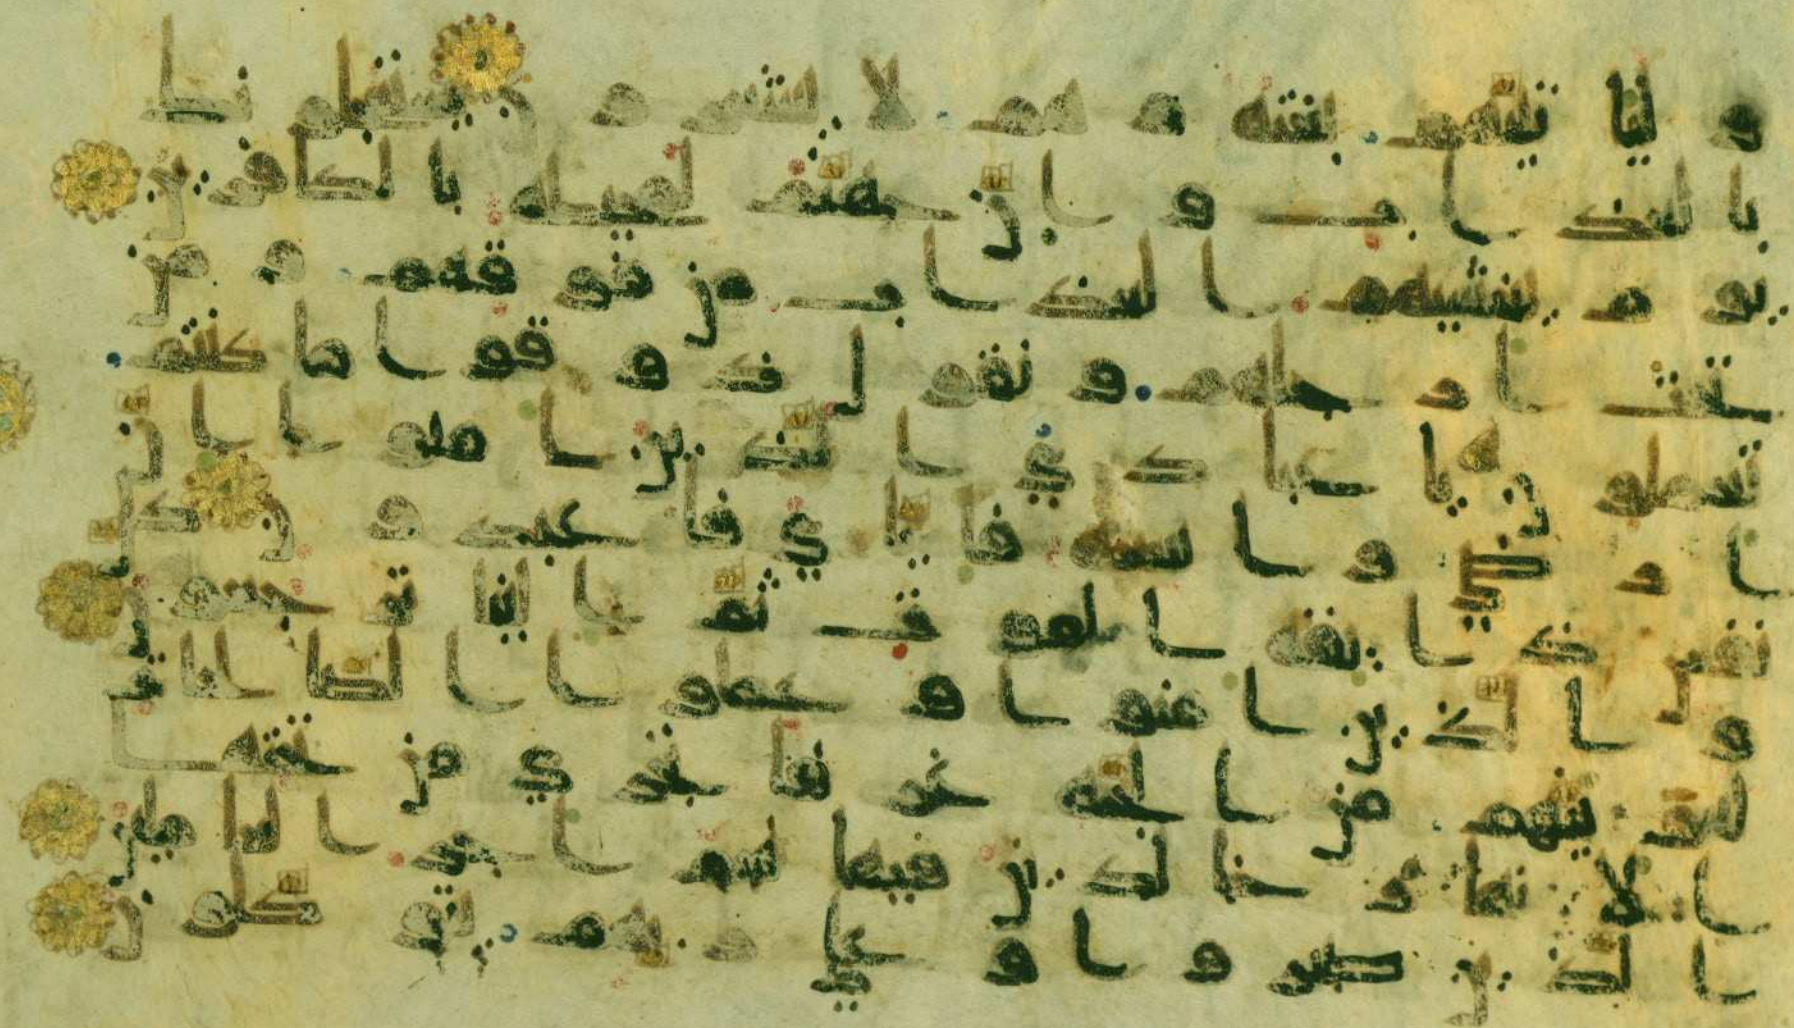 و ليأتينهم بغتة و هم لا يشعرون يستعجلونك
بالعذاب و ان جهنم لمحيطة بالكافرين
يوم يغشيهم العذاب من فوقهم و من
تحت ارجلهم و يقول ذوقوا ما كنتم
تعملون يا عبادي الذين امنوا ان
ارضي واسعة فاياي فاعبدون كل
نفس ذائقة الموت ثم الينا ترجعون
و الذين امنوا و عملوا الصالحات
لنبوئنهم من الجنة غرفا تجري من تحتها
الانهار خالدين فيها نعم اجر العاملين
الذين صبروا و على ربهم يتوكلون